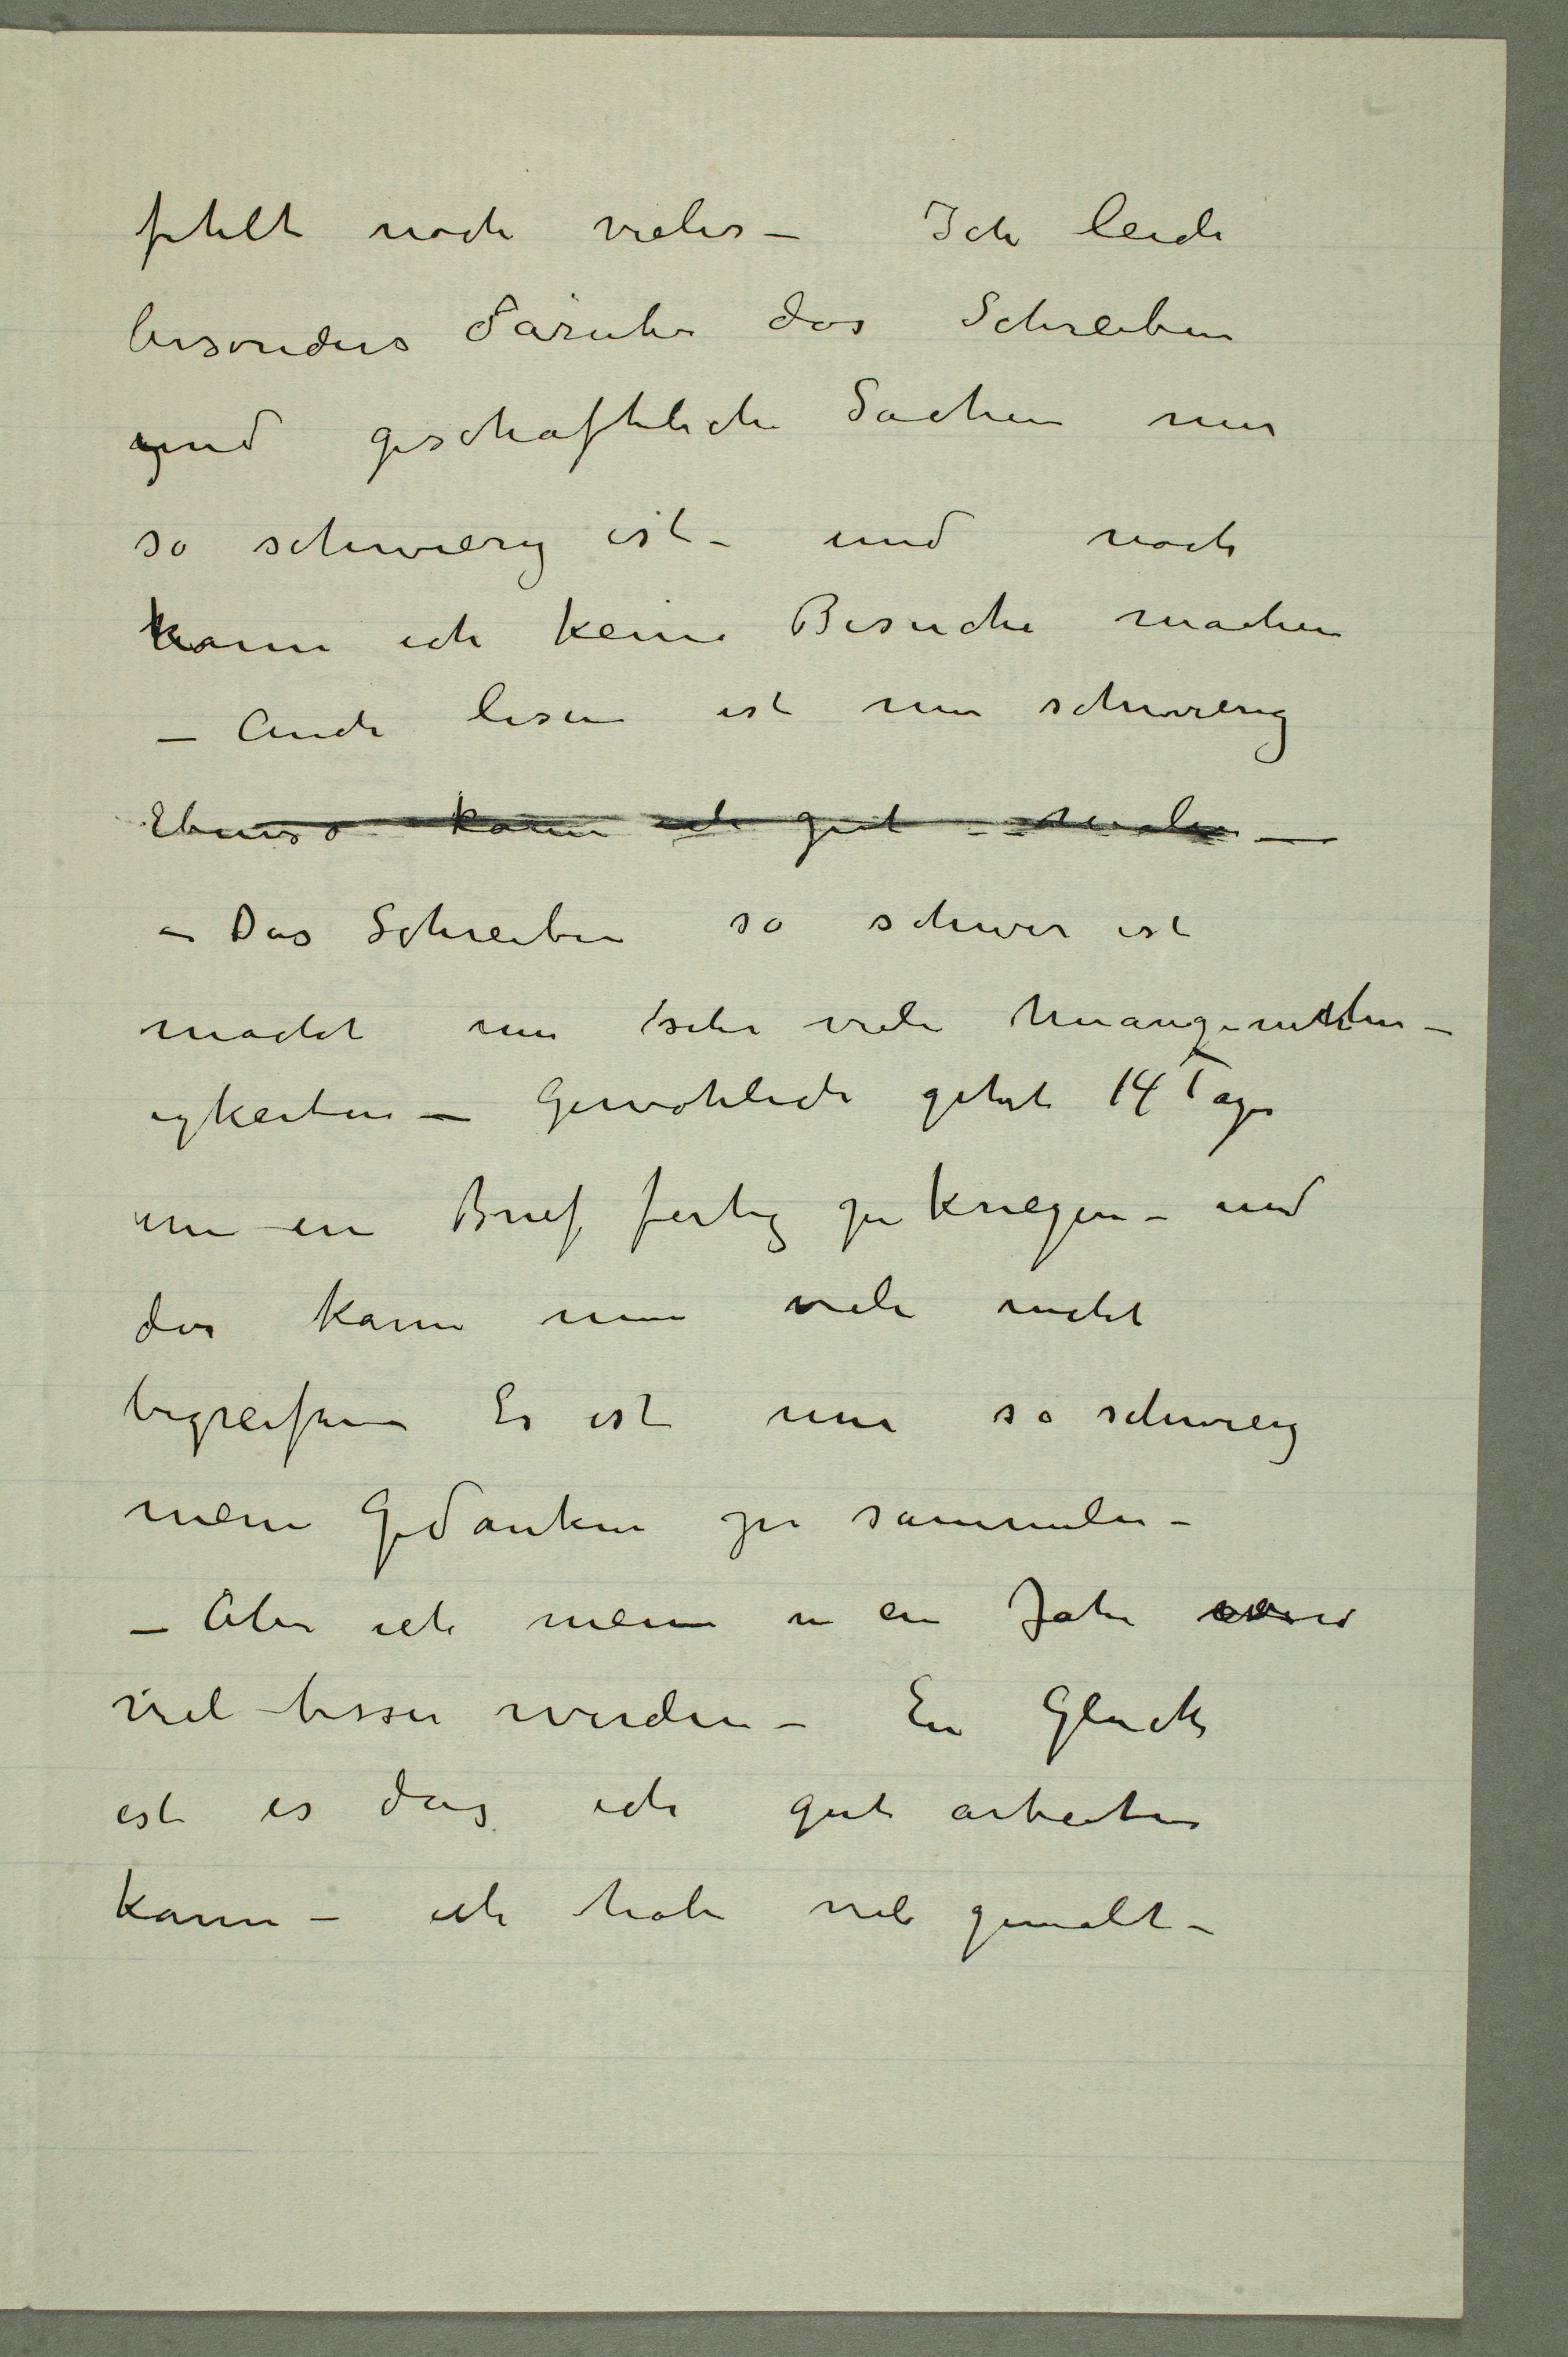 fehlt noch vieles – Ich leide
besonders daruber das Schreiben
und geschaftliche Sachen mir
so schwierig ist – und noch
kann ich keine Besuche machen
– Auch lesen ist mir schwierig
Ebenso kann ich gut – malen –
– Das Schreiben so schwer ist
macht mir sehr viele Unangenehm–
igkeiten – Gewohlich gehet 14 Tage
um ein Brief fertig zu kriegen – und
das kann man viele nicht
begreifen Es ist mir so schwierig
meine Gedanken zu sammeln –
– Aber ich meine in ein Jahr wird
viel besser werden – Ein Gluck
ist es das ich gut arbeiten
kann – ich habe viel gemalt –